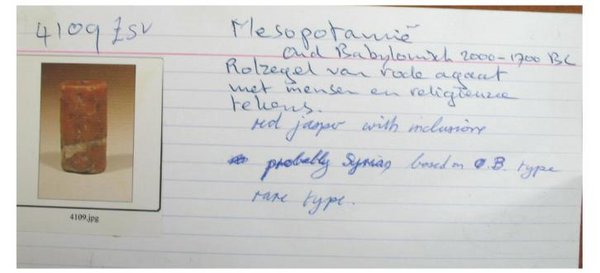 4109 ZSV
Mesopotamië
Oud Babylonisch 2000-1700 BC
Rolzegel van rode agaat
met mensen en religieuze
tekens.
red jasper with inclusions
probably Syrian, based on O.B. type
rare type.
4109.jpg